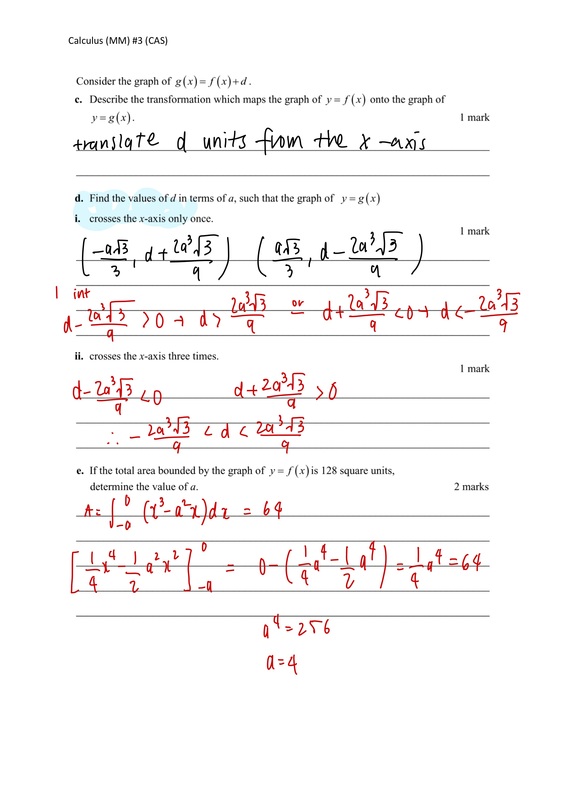 Calculus (MM) #3 (CAS)
Consider the graph of g(x) = f(x) + d.
c. Describe the transformation which maps the graph of y = f(x) onto the graph of
y = g(x). 1 mark
translate d units from the x-axis
d. Find the values of d in terms of a, such that the graph of y = g(x)
i. crosses the x-axis only once.
1 mark
(-a√3/3, d + 2a³√3/9) (a√3/3, d - 2a³√3/9)
1 int
d - 2a³√3/9 > 0 → d > 2a³√3/9 or d + 2a³√3/9 < 0 → d < -2a³√3/9
ii. crosses the x-axis three times.
1 mark
d - 2a³√3/9 < 0 d + 2a³√3/9 > 0
∴ -2a³√3/9 < d < 2a³√3/9
e. If the total area bounded by the graph of y = f(x) is 128 square units,
determine the value of a. 2 marks
A = ∫_{-a}^{0} (x³ - a²x) dx = 64
[1/4 x⁴ - 1/2 a²x²]_{-a}^{0} = 0 - (1/4 a⁴ - 1/2 a⁴) = 1/4 a⁴ = 64
a⁴ = 256
a = 4